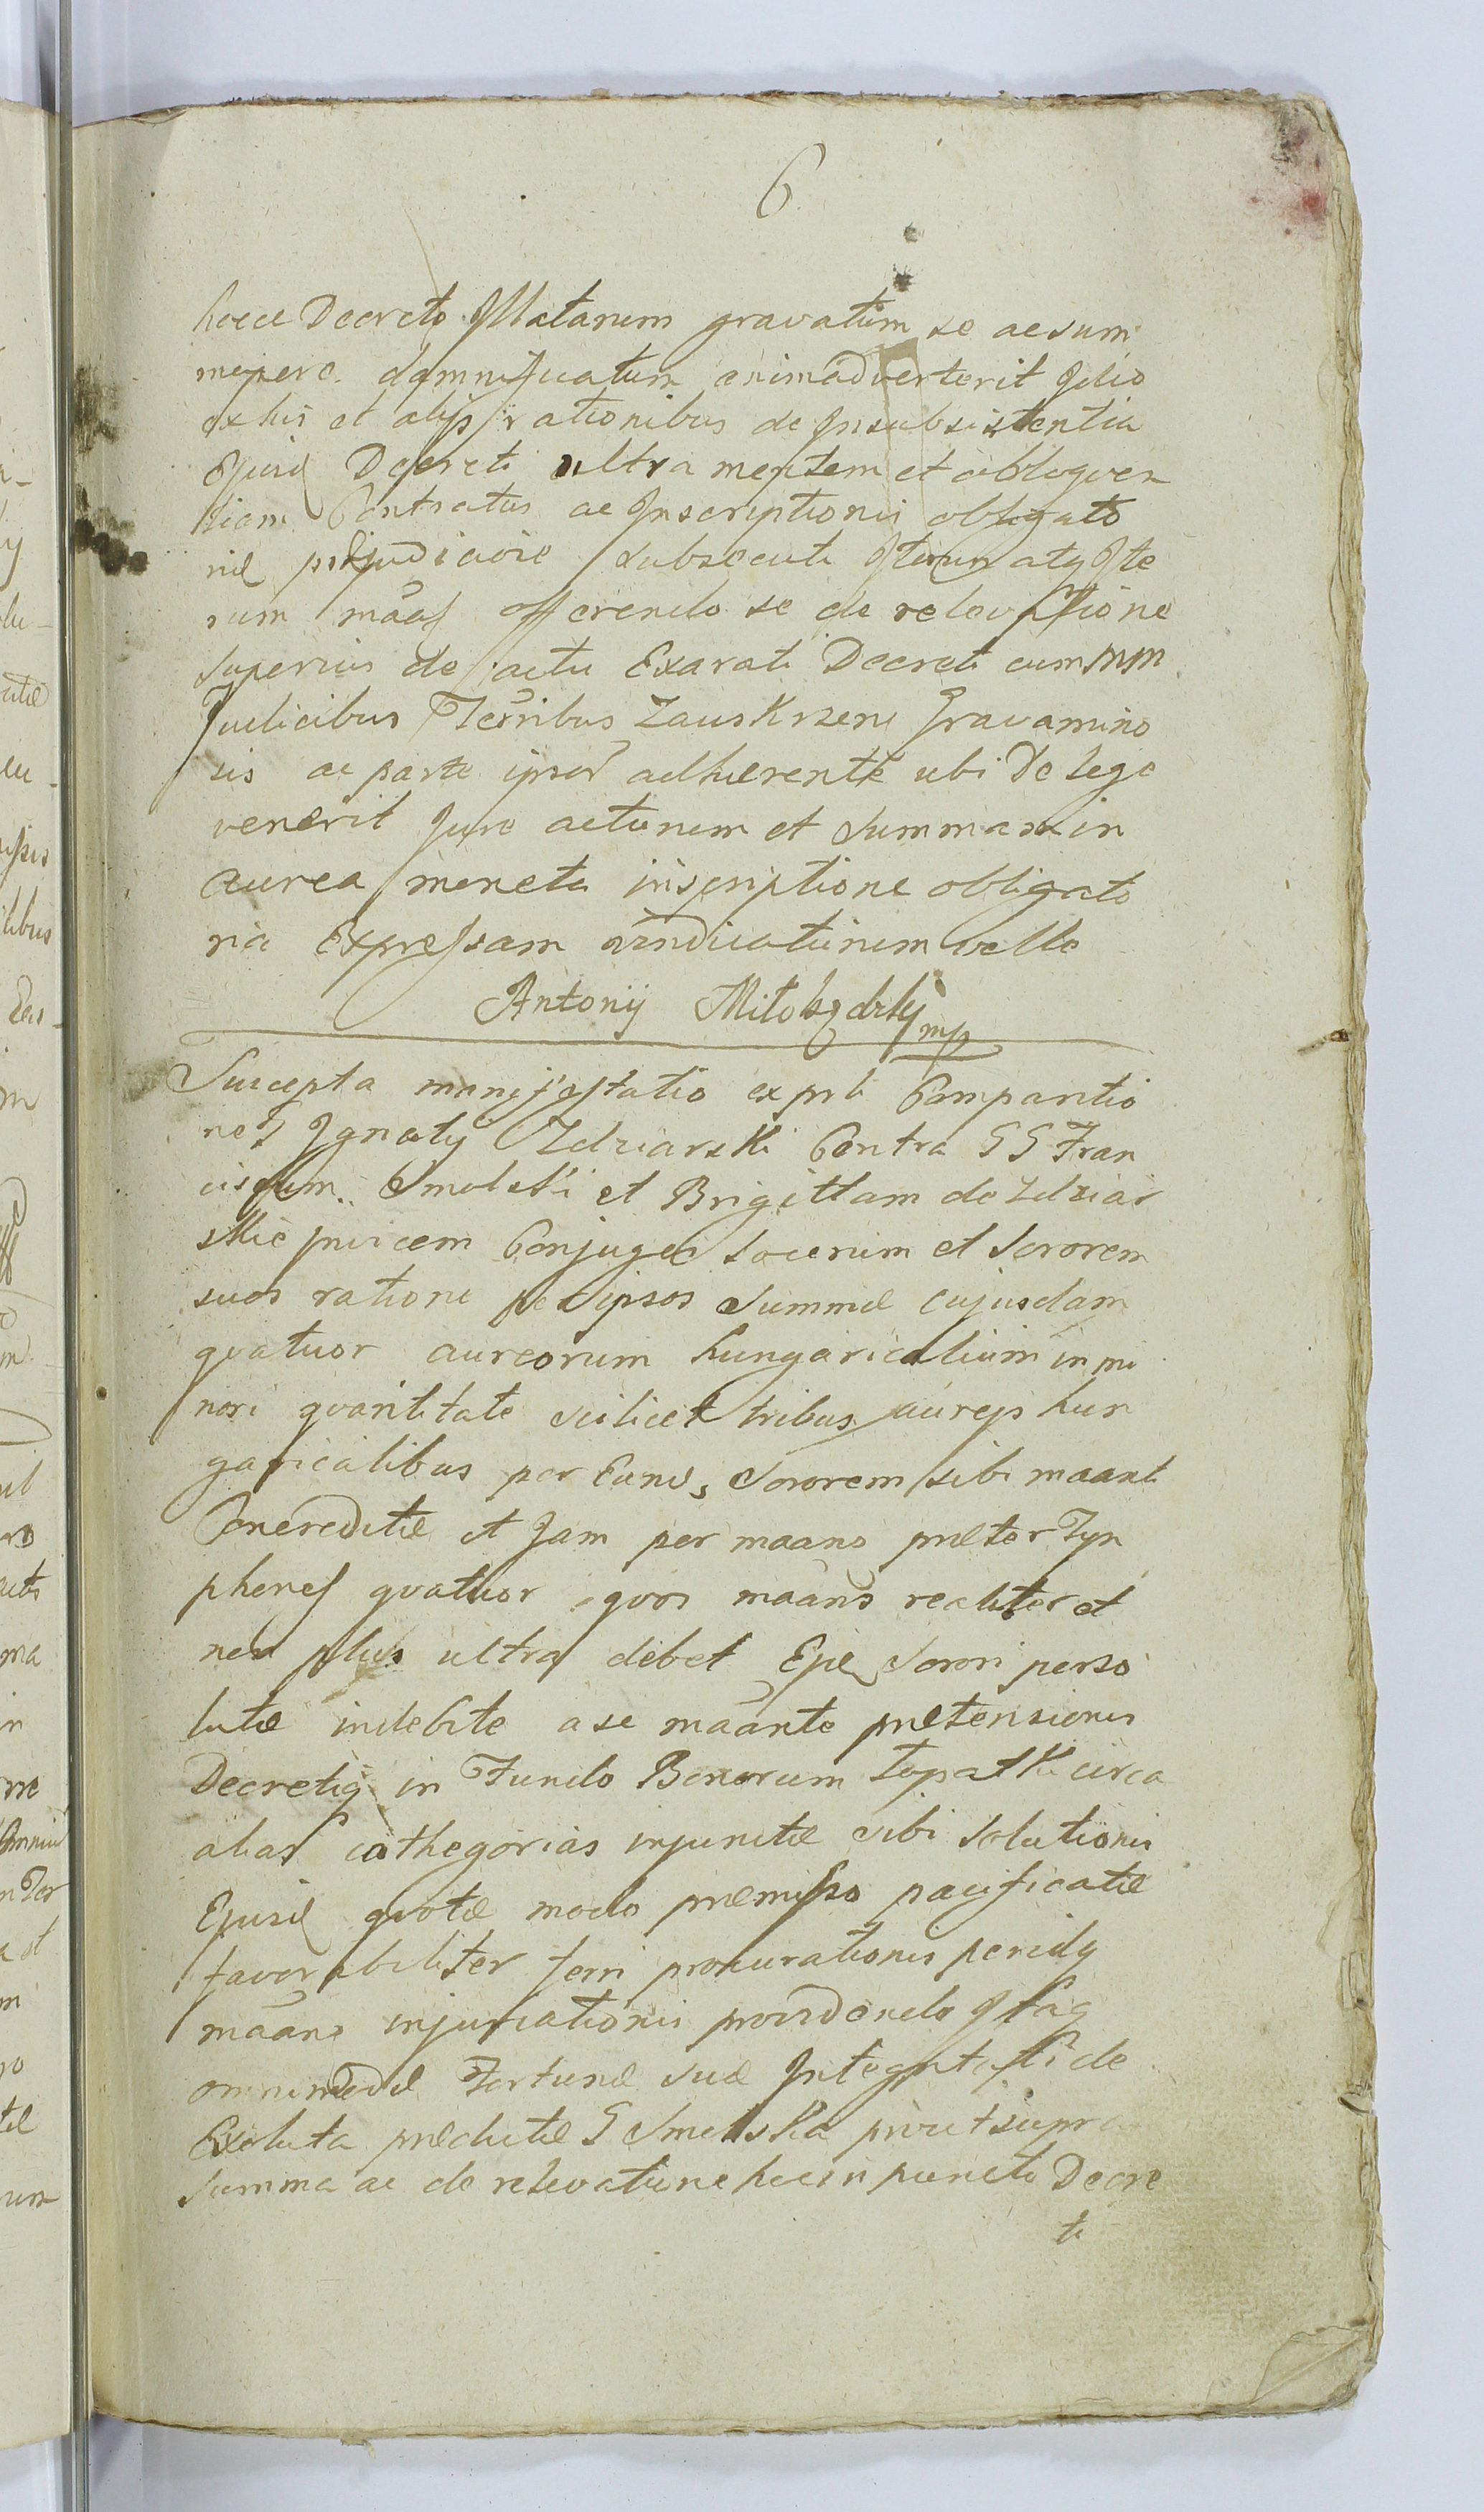 6
hocce Decreto Illatarum gravatum se ac sum
mopere damnificatum animadverterit Ideo
ex his et alijs rationibus de Insubsistentia
Ejusd Decreti ultra mentem et obloquen
tiam Contractus ac Inscriptionis obligato
riæ præjudiciose subsecuti Iterum atq Ite
rum maās offerendo se de relevatione
superius de actu Exarati Decreti cum MM
Judicibus Terribus Zauskrzen Gravamino
sis ac parte ipsor adhærente ubi De lege
venerit Jure acturum et Summam in
aurea moneta inscriptione obligato
ria Expressam vindicaturum velle
Antonij mp
Suscepta manifestatio ex prti Comparitio
ne G Ignatij Zdziarski Contra GG Fran
ciscum Smolski et Brigittam de Zdziar
skie invicem Conjuges Socerum et Sororem
suos ratione per ipsos Summæ cujusdam
qvatuor aureorum hungaricalium in mi
nori qvantitate scilicet tribus aureis hun
garicalibus per Eand Sororem sibi maanti
Concreditæ et Jam per maans præter Tyn
phones qvatuor qvos maans realiter et
non plus ultra debet Eid Sorori perso
lutæ indebite a se maante prætensionis
Decretiq in Fundo Bonorum Łopatki circa
alias cathegorias injunctæ sibi Solutionis
Ejusd qvotæ modo præmisso pacificatæ
favorabiliter ferri procurationis perindq
maans injuriationis providendo Itaq
omnimodæ Fortunæ suæ Integritati de
Exoluta prædictæ G Smolska prout supra
Summa ac de relevatione hoc in puncto Decre
ti